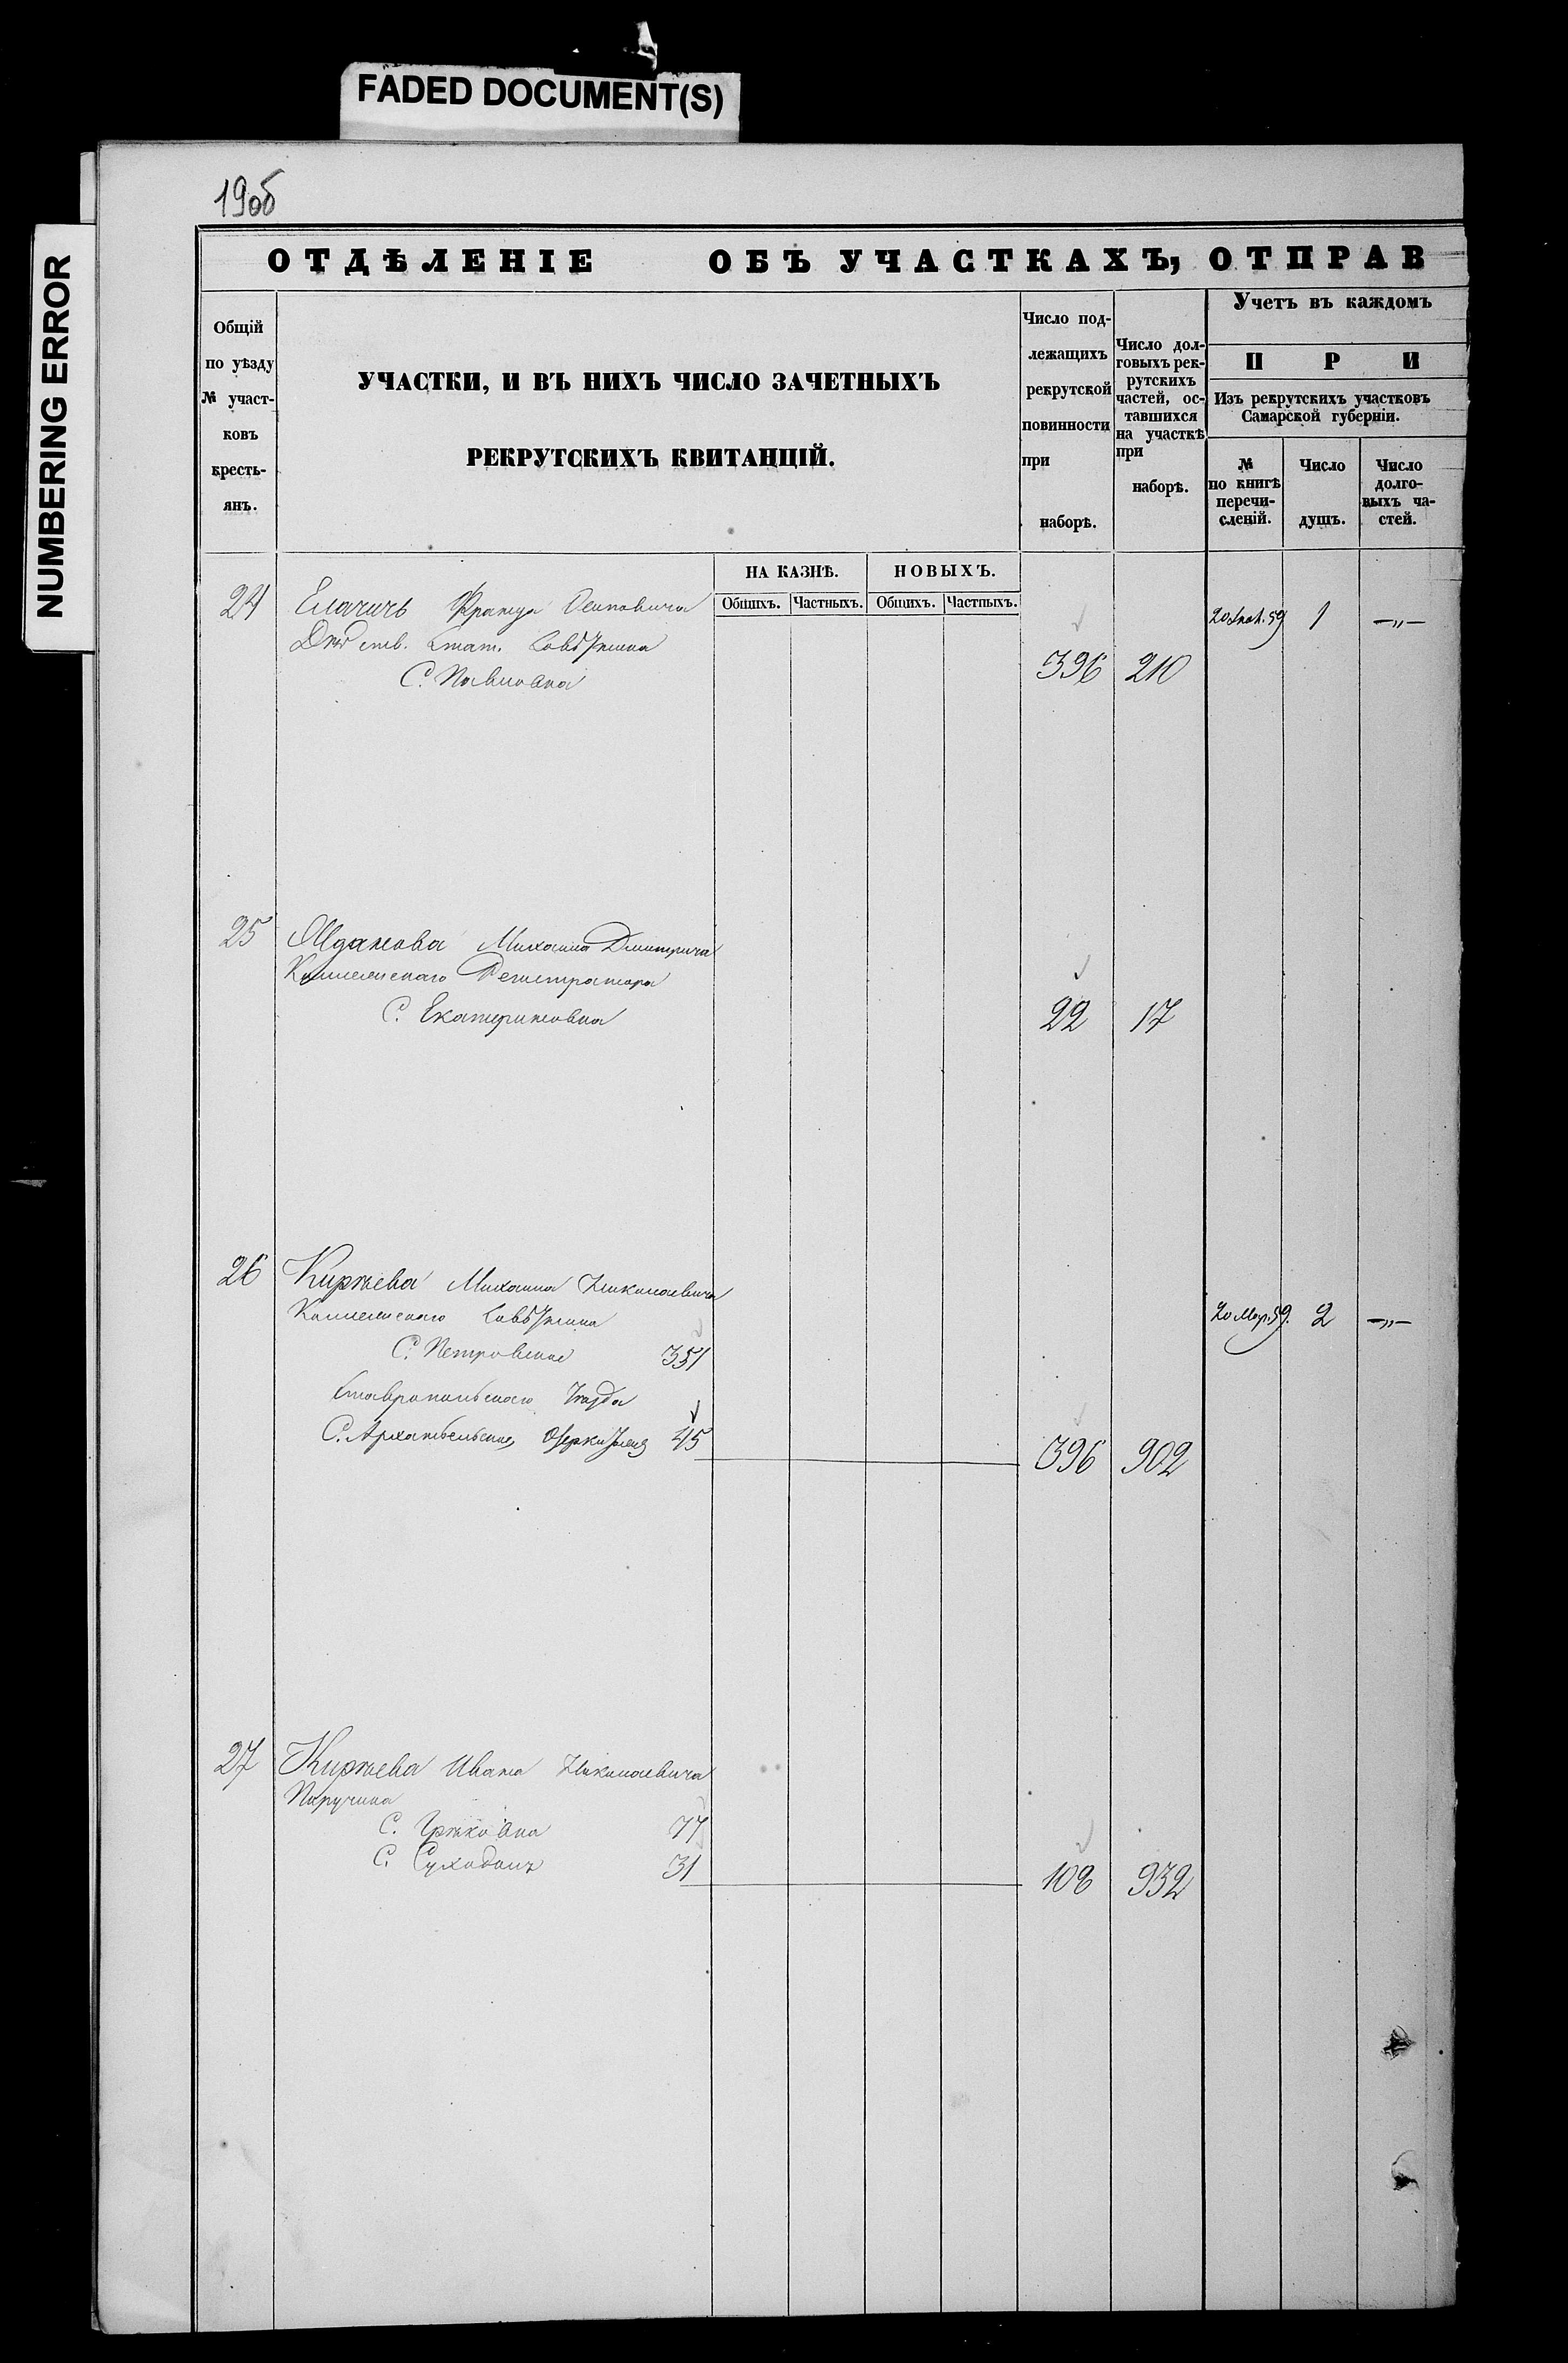 FADED DOCUMENT(S)
NUMBERING ERROR
190б
ОТДѢЛЕНІЕ ОБЪ УЧАСТКАХЪ, ОТПРАВ
Общій по уѣзду № участковъ крестьянъ.
УЧАСТКИ, И ВЪ НИХЪ ЧИСЛО ЗАЧЕТНЫХЪ
РЕКРУТСКИХЪ КВИТАНЦІЙ.
Число подлежащихъ рекрутской повинности при наборѣ.
Число долговыхъ рекрутскихъ частей, оставшихся на участкѣ при наборѣ.
Учетъ въ каждомъ
П Р И
Изъ рекрутскихъ участковъ
Самарской губерніи.
№ по книгѣ перечисленій.
Число душъ.
Число долговыхъ частей.
НА КАЗНѢ. НОВЫХЪ.
Общихъ. Частныхъ. Общихъ. Частныхъ.
24 Елачичъ Франца Осиповича 20 59 1 —„—
Дѣйств. Стат. Совѣтника
С. Павловка 396 210
25 Жданова Михаила Дмитрича
Коллежскаго Регистратора
С. Екатериновка 22 17
26 Кирѣева Михаила Николаевича
Коллежскаго Совѣтника 20 Мар. 59. 2 —„—
С. Петровское 351
Ставропольскаго Уѣзда
С. Архангельское, Озерки тожъ 45 396 902
27 Кирѣева Ивана Николаевича
Поручика
С. Грековка 77
С. Суходолъ 31 108 932